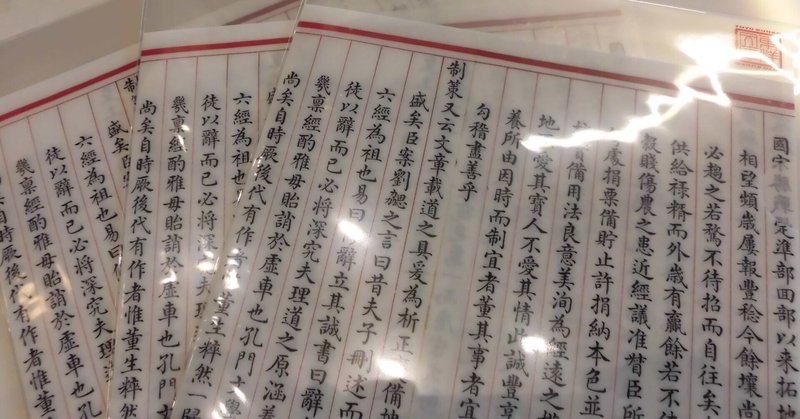 國定準部回部以来拓地
相望頻歲屢報豐稔今餘壤尚
必趨之若鶩不待招而自往矣
供給祿糈而外歲有贏餘若不待
穀賤傷農之患近經議准督臣所
處捐粟備貯止許捐納本色並
備用法良意美洵為經遠之
地愛其寶人不愛其情此誠豐亨
養所由因時而制宜者董其事者宜
勾稽盡善乎
制策又云文章載道之具爰為析正備
盛矣臣案劉勰之言曰昔夫子刪述而
六經為祖也易曰辭立其誠書曰辭
徒以辭而已必將深究夫理道之原涵義
幾稟經酌雅毋貽誚於虛車也孔門
尚矣自時厥後代有作者惟董生粹然一
盛
六經為祖也易
徒以辭而已必將深究夫理
幾稟經酌雅毋貽誚於虛車也孔門
尚矣自時厥後代有作者惟董生粹然
制
盛矣臣
六經為祖也易曰
徒以辭而已必將深究夫理
幾稟經酌雅毋貽誚於虛車也孔
尚矣自時厥後代有作者惟董